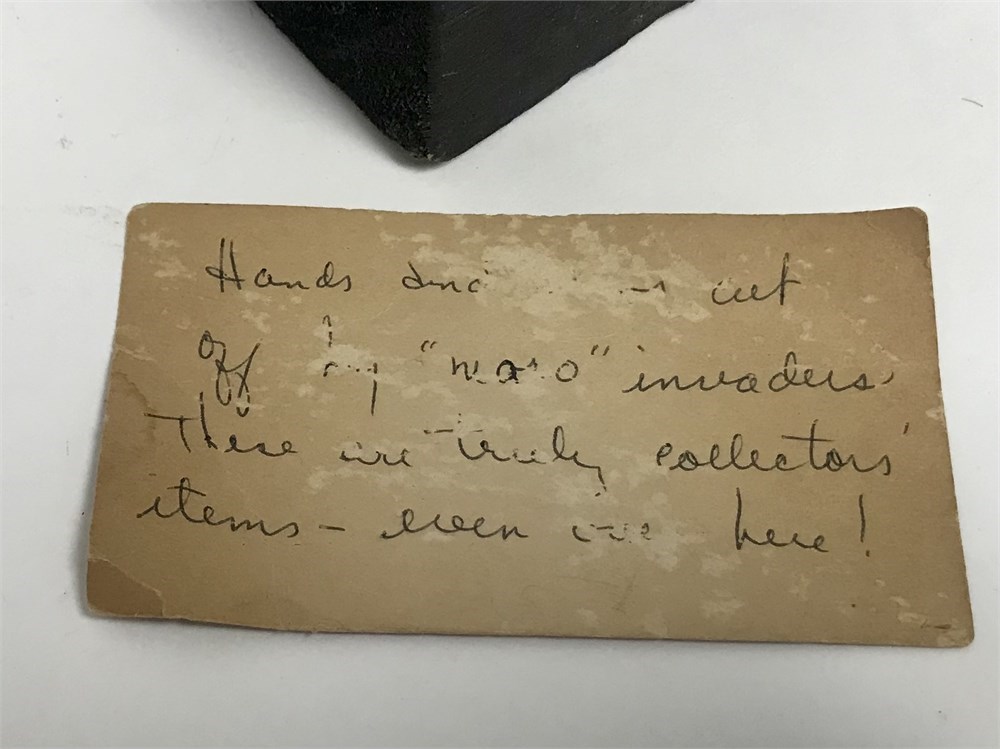 Hands and cut
off by "moro" invaders
These are truly collectors'
items - even over here!